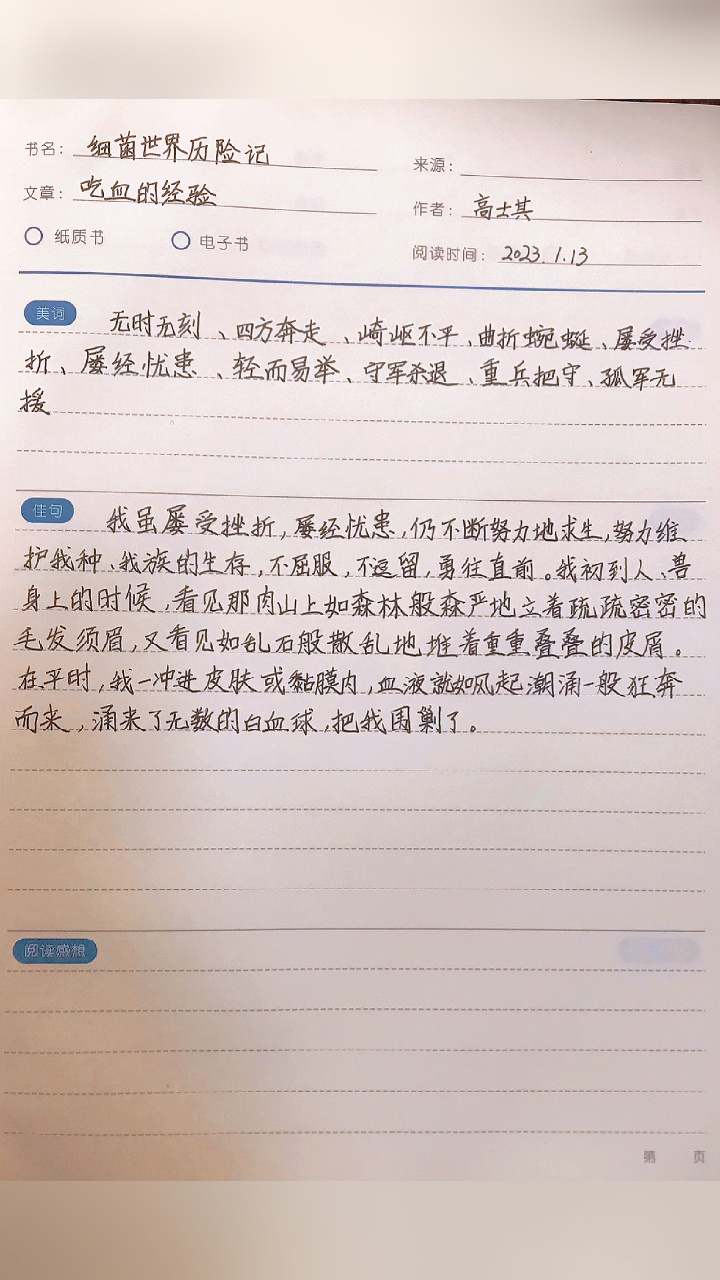 书名: 细菌世界历险记
来源:
文章: 吃血的经验
作者: 高士其
纸质书 电子书
阅读时间: 2023.1.13
美词 无时无刻、四方奔走、崎岖不平、曲折蜿蜒、屡受挫
折、屡经忧患、轻而易举、守军杀退、重兵把守、孤军无
援
佳句 我虽屡受挫折,屡经忧患,仍不断努力地求生,努力维
护我种、我族的生存,不屈服,不逗留,勇往直前。我初到人、兽
身上的时候,看见那肉山上如森林般森严地立着疏疏密密的
毛发须眉,又看见如乱石般散乱地堆着重重叠叠的皮屑。
在平时,我一冲进皮肤或黏膜内,血液就如风起潮涌一般狂奔
而来,涌来了无数的白血球,把我围剿了。
阅读感想
第 页